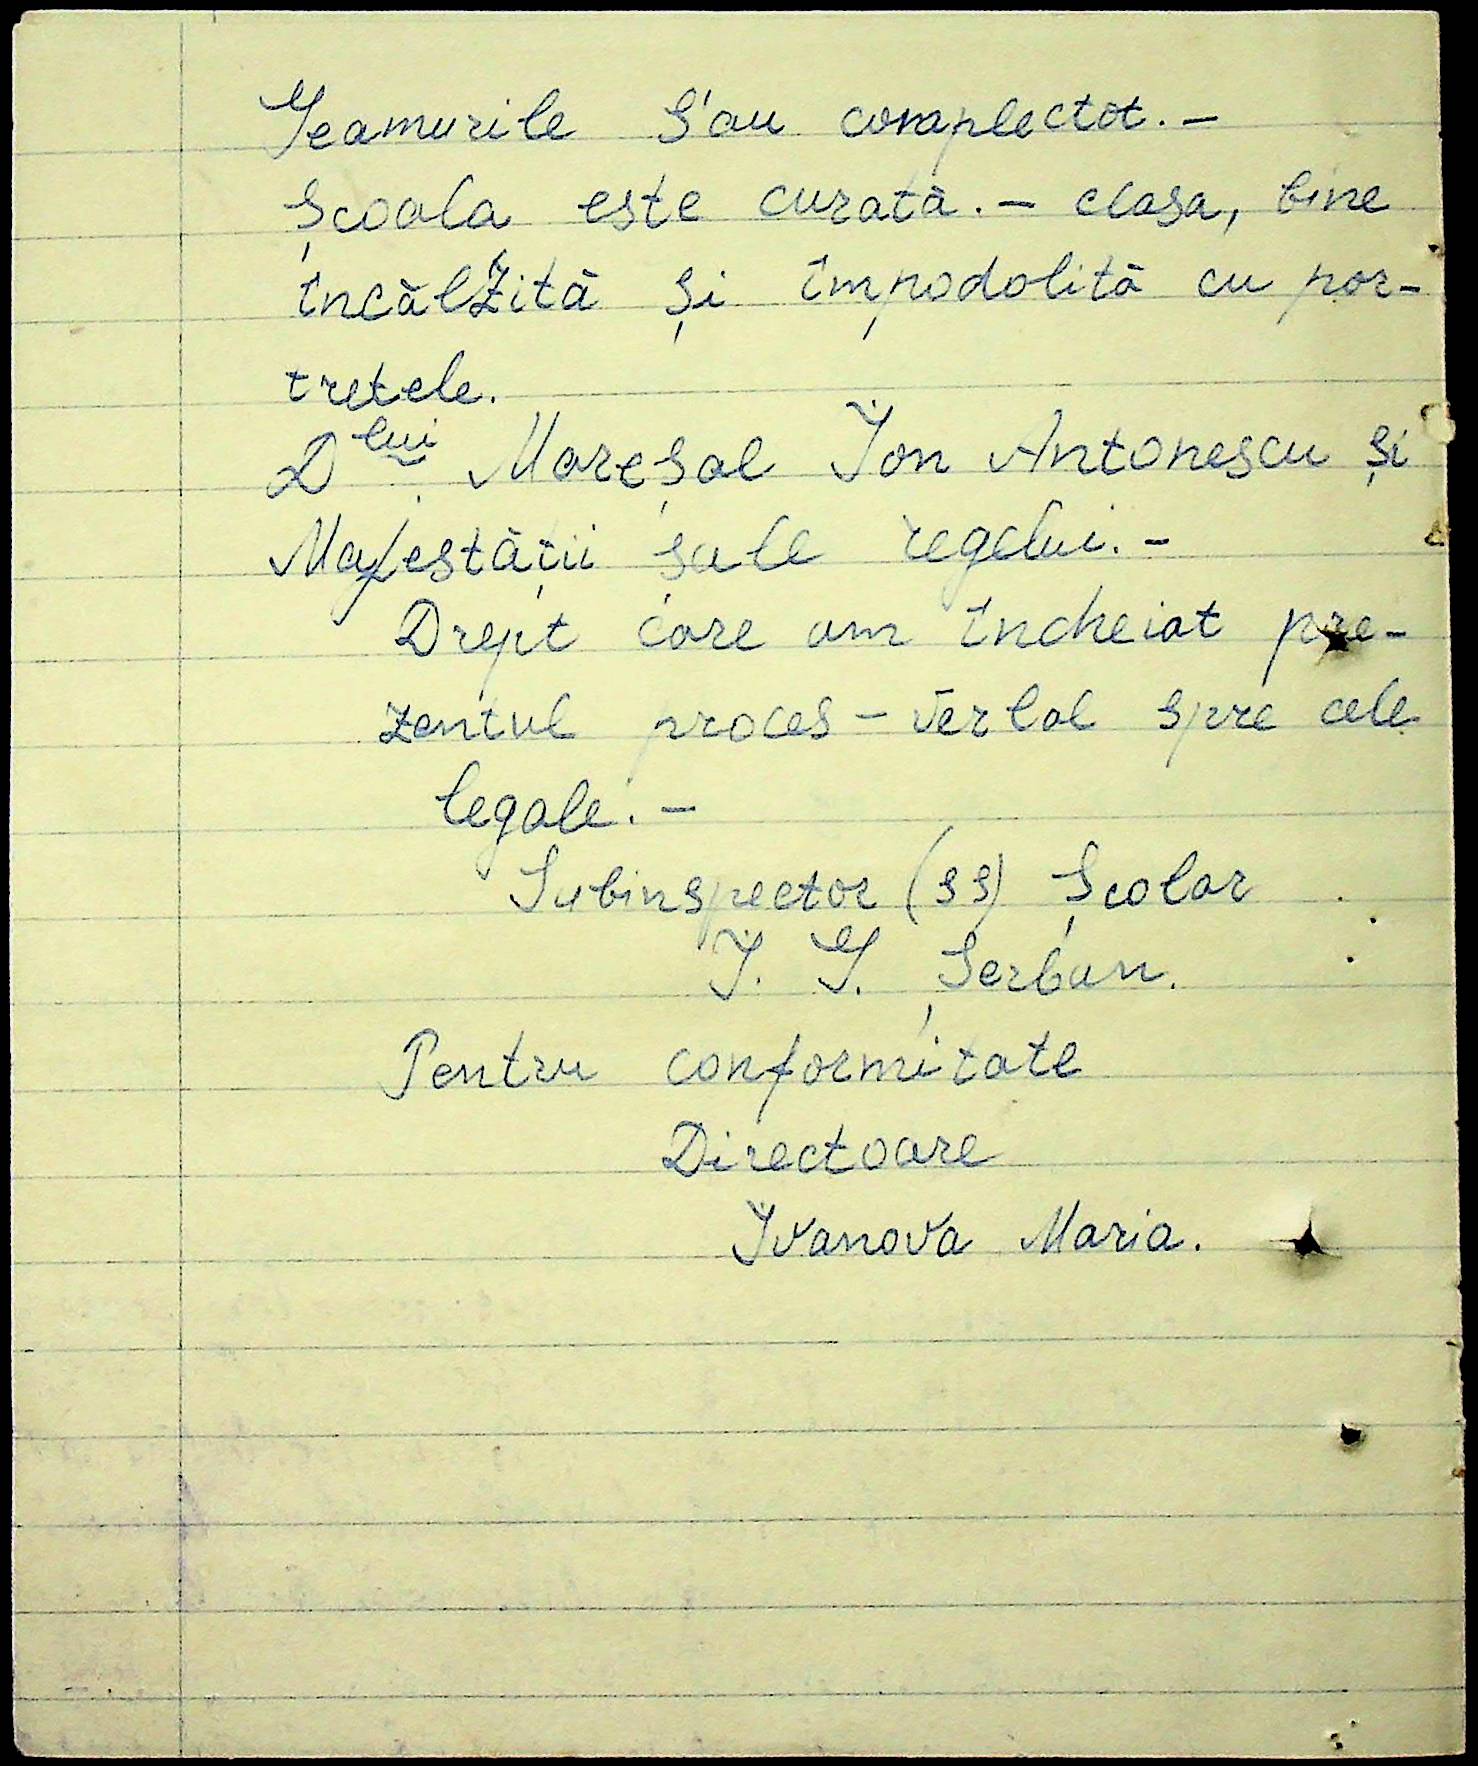 Geamurile s'au complectat. -
Școala este curată. - clasa, bine
încălzită și împodolită cu por-
tretele.
Dlui Mareșal Ion Antonescu și
Majestății sale regelui. -
Drept care am încheiat pre-
zentul proces - verbal spre cele
legale. -
Subinspector (ss) Școlar
I. G. Șerban.
Pentru conformitate
Directoare
Ivanova Maria.